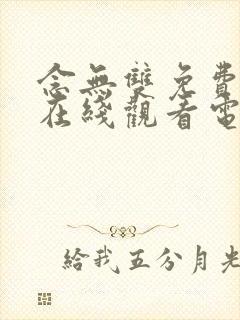 念無雙免費
在綫觀看電
給我五分月光